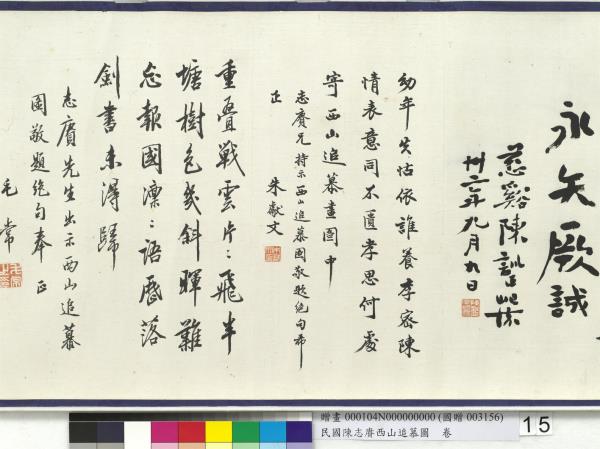 永矢厥誠
慈谿陳訓
卅二年九月九日
幼年失怙依誰養李密陳
情表意同不匱孝思何處
寄西山追慕畫圖中
志賡兄持示西山追慕圖敬題絕句希
正　朱獻文
重疊戰雲片〻飛半
塘樹色幾斜暉難
忘報國凜〻語歷落
劍書未得歸
志賡先生出示西山追慕
圖敬題絕句奉　正
毛常
贈畫 000104N000000000 (國贈 003156)
民國陳志賡西山追慕圖　卷
15